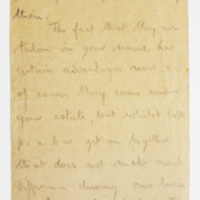 then.
The fact that they are
taken in your name has
certain advantages since
of course they come under
your estate, but whilst
p. a b w get on together
that does not make much
difference during our lives